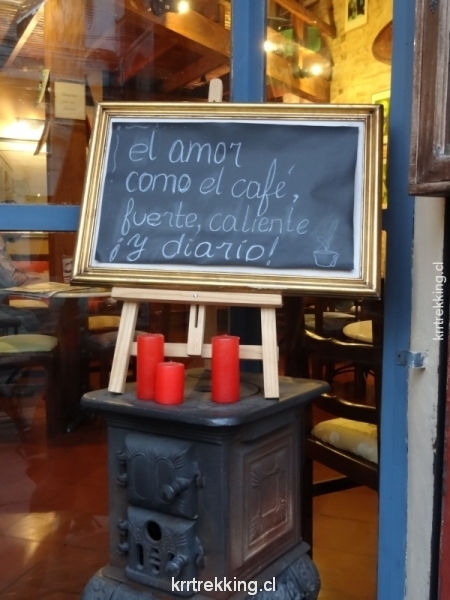 el amor
como el café,
fuerte, caliente
¡Y diario!
krrtrekking.cl
krrtrekking.cl